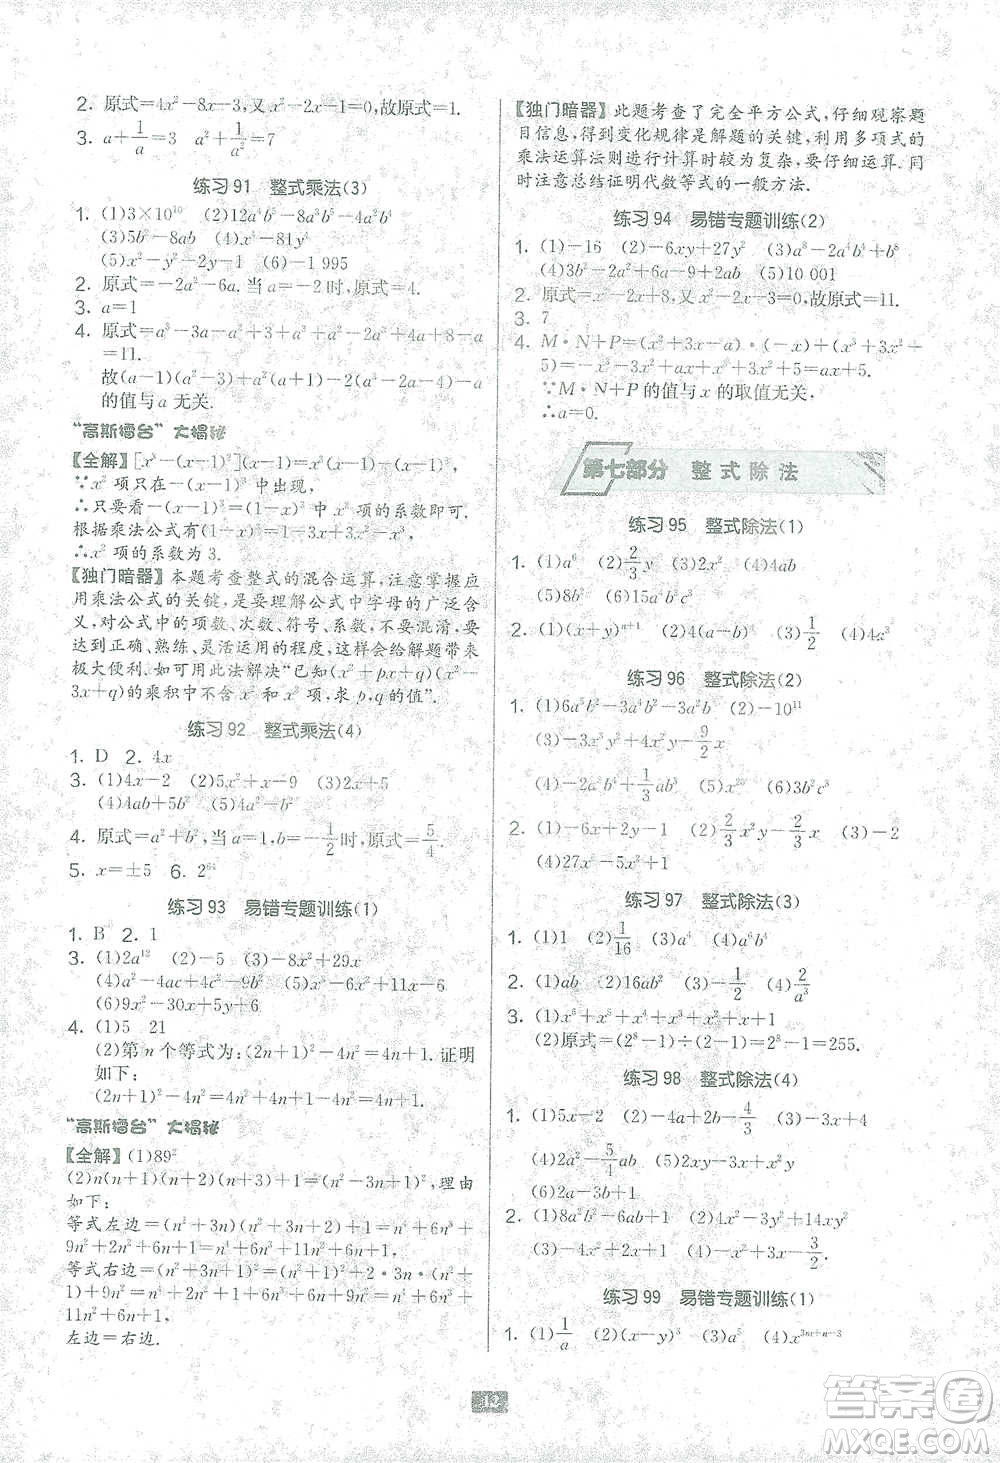 2. 原式=4x²-8x-3,又x²-2x-1=0,故原式=1.
3. a+1/a=3  a²+1/a²=7
练习91 整式乘法(3)
1. (1)3×10¹⁰ (2)12a⁴b⁵-8a³b⁴
(5)x²-y²+2y-1 (6)-1 995
2. 原式=-2a²-6a.当a=-2时,原式=4.
3. a=1
4. 原式=a²-3a-a²+3+a²+a²-2a²+4a+8-a
=11.
故(a-1)(a²-3)+a²(a+1)-2(a³-2a-4)-a
的值与a无关.
“高斯擂台”大揭秘
∵x²项只在-(x-1)³中出现,
∴只要看-(x-1)³=(1-x)³中x²项的系数即可.
根据乘法公式有(1-x)³=1-3x+3x²-x³,
∴x²项的系数为3.
【独门暗器】本题考查整式的混合运算,注意掌握应
用乘法公式的关键,是要理解公式中字母的广泛含
义,对公式中的项数、次数、符号、系数,不要混淆,要
达到明确、熟练、灵活运用的程度,这样会给解题带来
极大便利.如可用此法解决“已知(x²+px+q)(x²-
3x+q)的乘积中不含x²和x³项,求p,q的值”.
练习92 整式乘法(4)
1. D 2. 4x
3. (1)4x-2 (2)5x+x-9 (3)x⁴-1
(4)4ab+5b² (5)4a²-b²+2b-1
4. 原式=a²+b²,当a=1,b=-1/2时,原式=5/4.
5. x=±5 6. 2⁶⁴
练习93 易错专题训练(1)
1. B 2. 1
3. (1)2a¹² (2)-5 (3)-8x²+29x
(4)a²-4ac+4c²-b² (5)-3x²+18x-5
(6)9x²-30x+5y+6
4. (1)5 21
(2)第n个等式为:(2n+1)²-4n²=4n+1.证明
如下:
(2n+1)²-4n²=4n²+4n+1-4n²=4n+1.
“高斯擂台”大揭秘
【全解】(1)89²
(2)n(n+1)(n+2)(n+3)+1=(n²+3n+1)²,理由
如下:
等式左边=(n²+3n)(n²+3n+2)+1=n⁴+6n³+
9n²+2n²+6n+1=n⁴+6n³+11n²+6n+1,
等式右边=(n²+3n+1)²=(n²+3n)²+2·(n²+3n)·
1+1=n⁴+6n³+9n²+2n²+6n+1=n⁴+6n³+
11n²+6n+1,
左边=右边.
【独门暗器】此题考查了完全平方公式,仔细观察题
目信息,得到变化规律是解题的关键,利用多项式的
乘法运算法则进行计算时较为复杂,要仔细运算.同
时注意总结证明代数等式的一般方法.
练习94 易错专题训练(2)
1. (1)-16 (2)-6xy+27y² (3)a⁸-2a⁴b⁴+b⁸
(4)3b²-2a²+6a-9+2ab (5)10 001
2. 原式=x²-2x+8,又x²-2x-3=0,故原式=11.
3. 7
4. M·N+P=(x²+3x-a)·(-x)+(x³+3x²+
5)=-x³-3x²+ax+x³+3x²+5=ax+5.
∵M·N+P的值与x的取值无关,
∴a=0.
第七部分 整式除法
练习95 整式除法(1)
1. (1)a⁶ (2)2/3y (3)-18x² (4)4ac
(5)8b² (6)10a²b²c³
2. (1)(x+y)ⁿ⁺¹ (2)4(a-b)² (3)1/2 (4)4c³
练习96 整式除法(2)
2. (1)3x-2y-1 (2)2/3x²y²-2/3x (3)-9x
(4)27x²-2x+1
练习97 整式除法(3)
1. (1)1 (2)1/16 (3)a⁴ (4)a⁶b⁴
2. (1)ab (2)16ab² (3)-1/2 (4)2/a³
3. (1)x⁶+x⁵+x⁴+x³+x²+x+1
(2)原式=(2⁸-1)÷(2-1)=2⁸-1=255.
练习98 整式除法(4)
1. (1)5x-2 (2)-4a+2b-4/3 (3)-3x+4
(6)2a-b-2
2. (1)8a²b²-6ab+1 (2)-4x²y²+2y+1
练习99 易错专题训练(1)
1. (1)1/a (2)(x-y)⁸ (3)a⁵ (4)x³ⁿ⁺ⁿ⁻³
12
答案圈
MXQE.COM